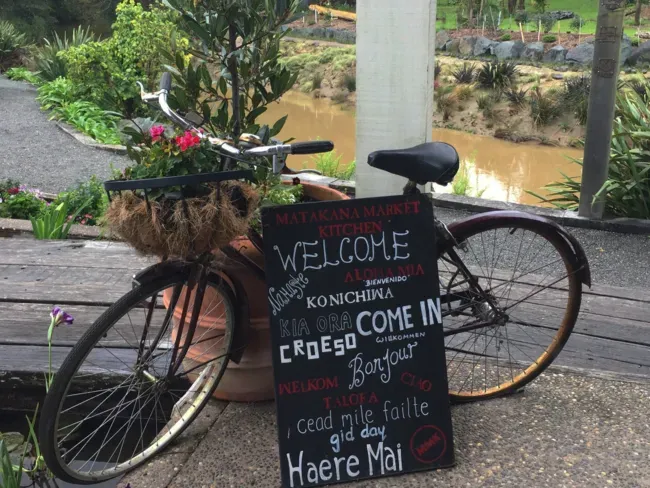 MATAKANA MARKET
KITCHEN
WELCOME
Namaste
ALOHA MAI
"BIENVENIDO"
KONICHIWA
KIA ORA COME IN
CROESO WILLKOMMEN
Bonjour
WELKOM CIAO
TALOFA
cead mile failte
gid day
Haere Mai